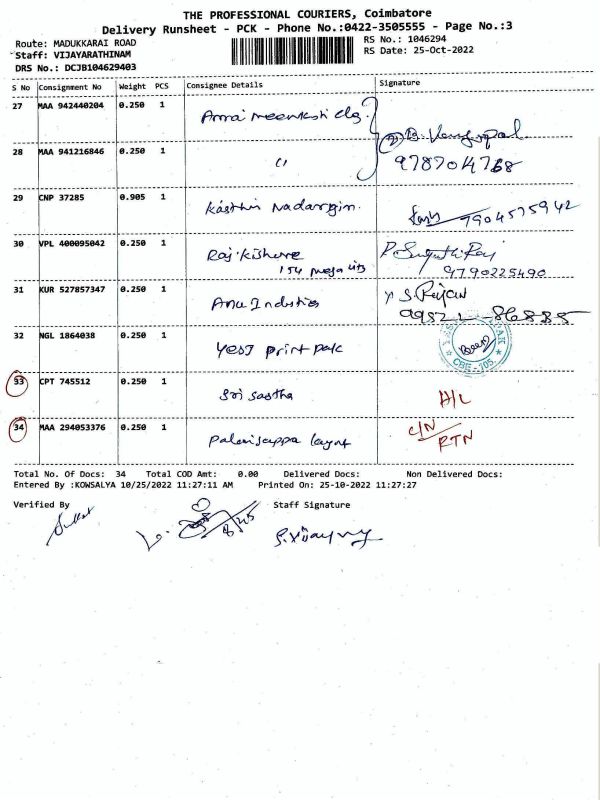 THE PROFESSIONAL COURIERS, Coimbatore
Delivery Runsheet - PCK - Phone No.:0422-3505555 - Page No.:3
Route: MADUKKARAI ROAD
Staff: VIJAYARATHINAM
DRS No.: DCJB104629403
RS No.: 1046294
RS Date: 25-Oct-2022
S No Consignment No Weight PCS Consignee Details Signature
27 MAA 942440204 0.250 1
28 MAA 941216846 0.250 1 978704768
29 CNP 37285 0.905 1 Nadargm. 9904575942
30 VPL 400095042 0.250 1 Raj.Kishore
154 mega city 9790225490
31 KUR 527857347 0.250 1 Anu Industries S. Rajan
32 NGL 1864038 0.250 1 Yest print pak
CBE - 105.
33 CPT 745512 0.250 1 Sri Sastha A/L
34 MAA 294053376 0.250 1 layout C/N
RTN
Total No. Of Docs: 34 Total COD Amt: 0.00 Delivered Docs: Non Delivered Docs:
Entered By :KOWSALYA 10/25/2022 11:27:11 AM Printed On: 25-10-2022 11:27:27
Verified By Staff Signature